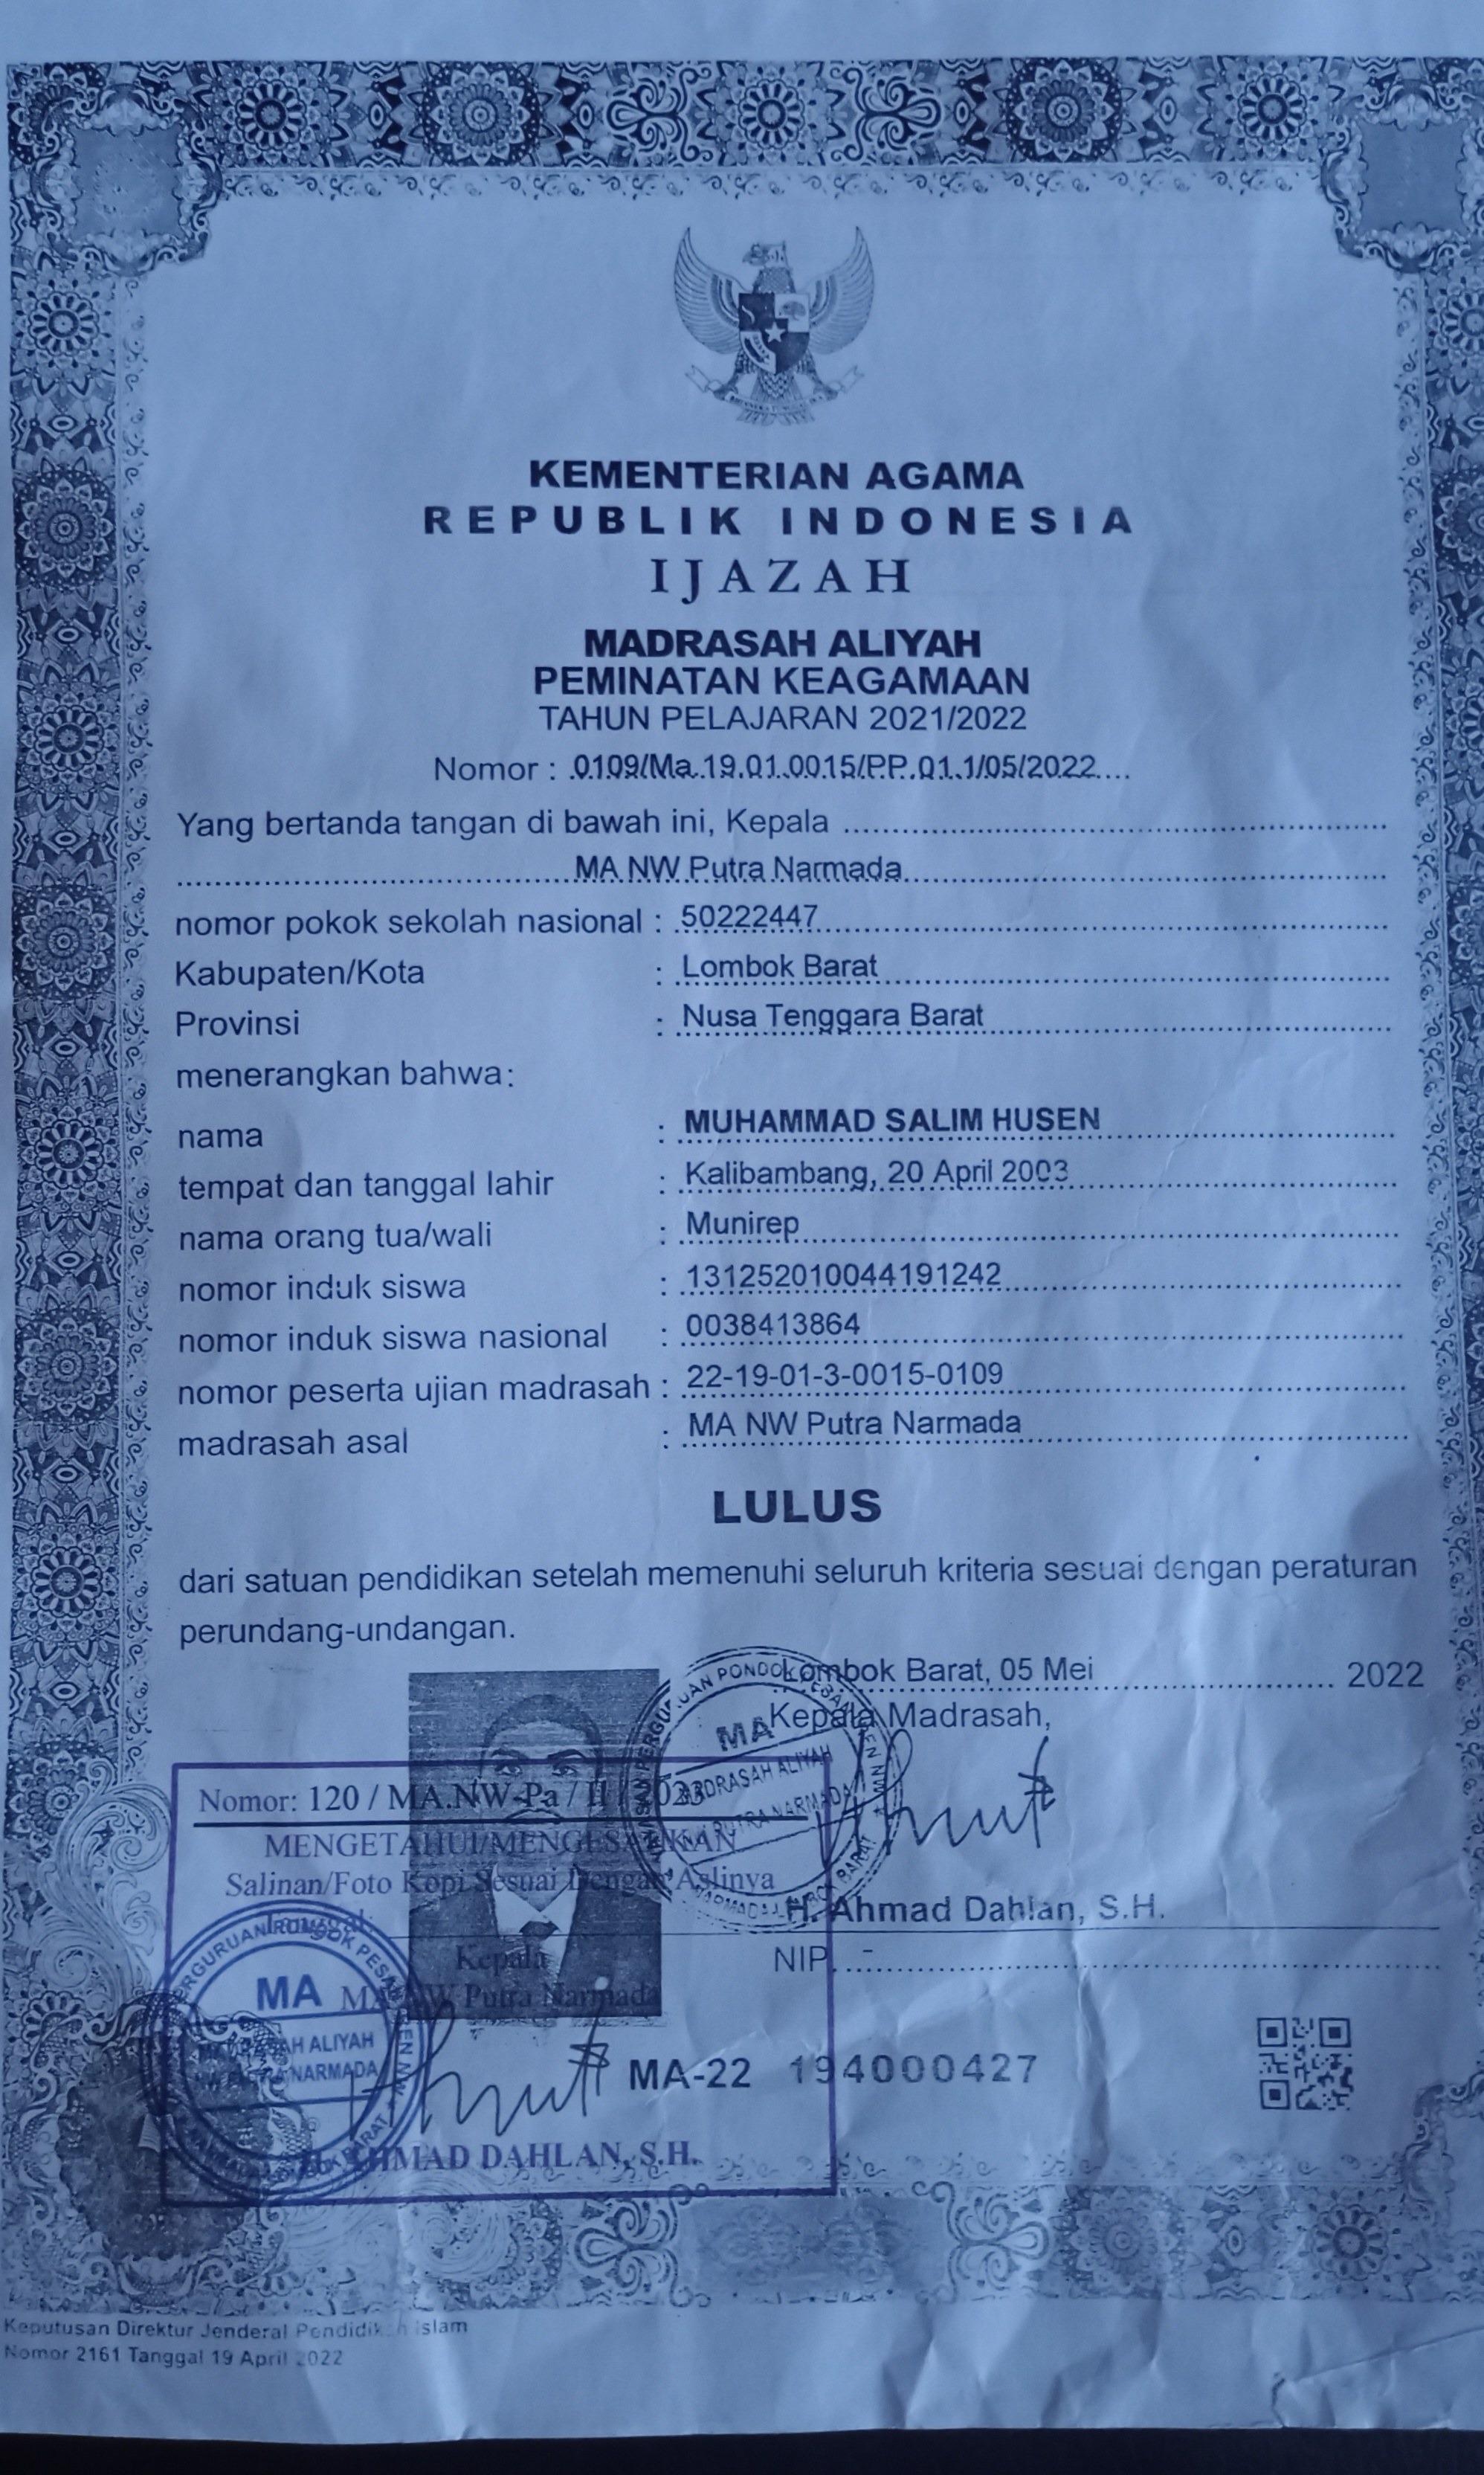 KEMENTERIAN AGAMA
REPUBLIK INDONESIA
IJAZAH
MADRASAH ALIYAH
PEMINATAN KEAGAMAAN
TAHUN PELAJARAN 2021/2022
Nomor : 0109/Ma.19.01.0015/PP.01.1/05/2022
Yang bertanda tangan di bawah ini, Kepala
MA NW Putra Narmada
nomor pokok sekolah nasional : 50222447
Kabupaten/Kota : Lombok Barat
Provinsi : Nusa Tenggara Barat
menerangkan bahwa:
nama : MUHAMMAD SALIM HUSEN
tempat dan tanggal lahir : Kalibambang, 20 April 2003
nama orang tua/wali : Munirep
nomor induk siswa : 131252010044191242
nomor induk siswa nasional : 0038413864
nomor peserta ujian madrasah : 22-19-01-3-0015-0109
madrasah asal : MA NW Putra Narmada
LULUS
dari satuan pendidikan setelah memenuhi seluruh kriteria sesuai dengan peraturan
perundang-undangan.
Lombok Barat, 05 Mei 2022
Kepala Madrasah,
MA
MADRASAH ALIYAH
NW PUTRA NARMADA
H. Ahmad Dahlan, S.H.
NIP. -
Nomor: 120 / MA.NW-Pa / II / 2023
MENGETAHUI/MENGESAHKAN
Salinan/Foto Kopi Sesuai Dengan Aslinya
Tanggal:
Kepala
MA NW Putra Narmada
MA
MADRASAH ALIYAH
NW PUTRA NARMADA
H. AHMAD DAHLAN, S.H.
MA-22 194000427
Keputusan Direktur Jenderal Pendidikan Islam
Nomor 2161 Tanggal 19 April 2022